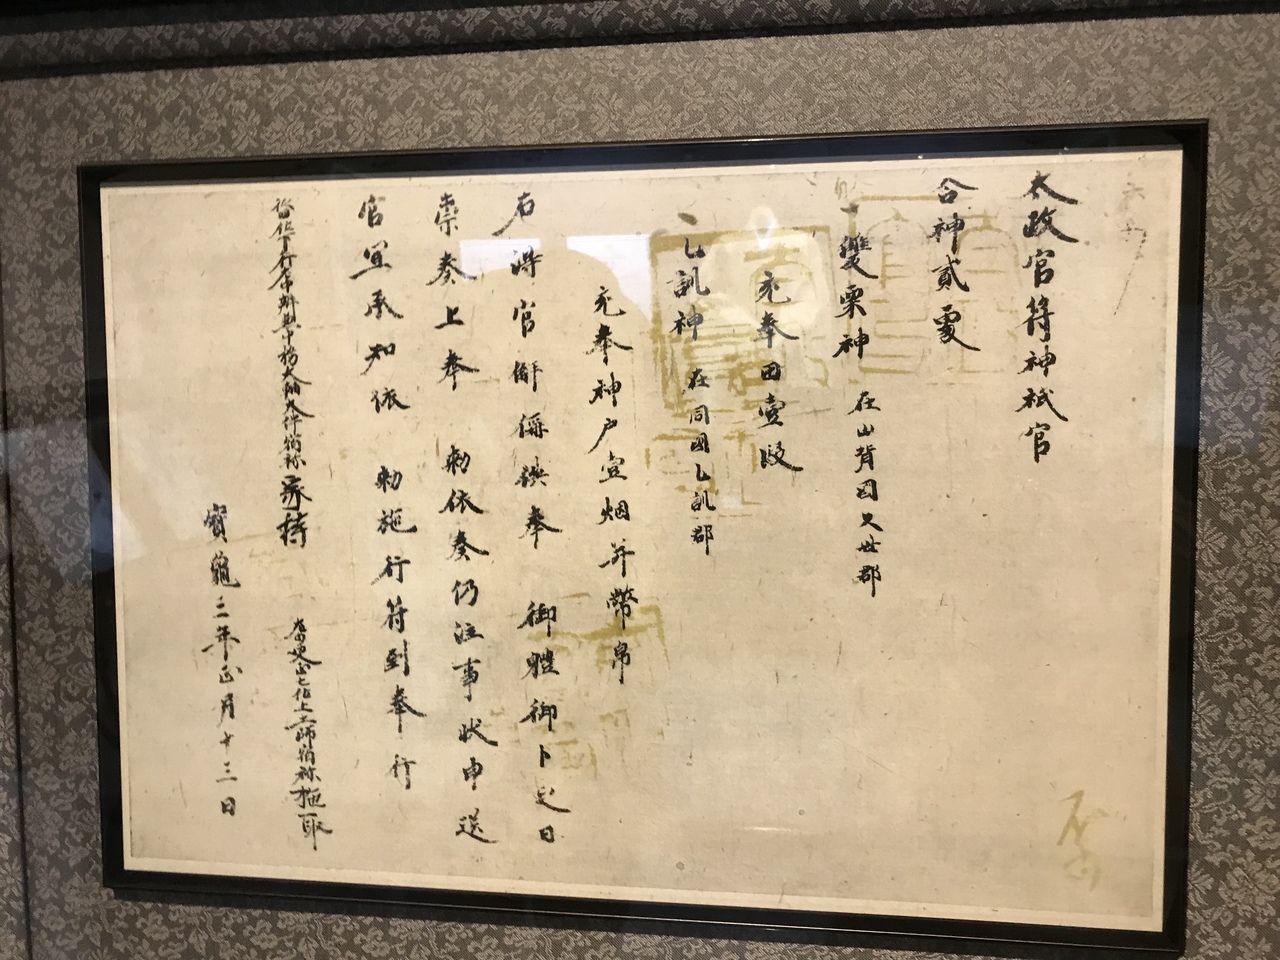 太政官符神祇官
合神貳處
雙栗神 在山背国久世郡
充奉田壹段
乙訓神 在同国乙訓郡
充奉神戸壹烟并幣帛
右得官解偁 奉 御體御卜 日
崇奏上奉 勅依奏仍注事状申送
官宜承知依 勅施行符到奉行
従四位下行左中弁兼中務大輔大伴宿祢家持
左 史正七位上土師宿祢
寶龜三年正月十三日